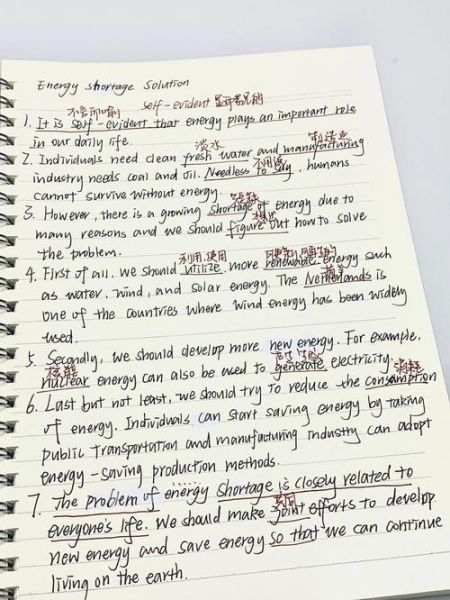 Energy shortage Solution
不言而喻 self-evident 显而易见的
1. It is self-evident that energy plays an important role
in our daily life.
淡水 制造业
2. Individuals need clean fresh water and manufacturing
industry needs coal and oil. Needless to say, humans
不用说
cannot survive without energy.
短缺
3. However, there is a growing shortage of energy due to
想出
many reasons and we should figure out how to solve
the problem.
利用,使用
4. First of all. We should utilize more renewable energy such
as water, wind, and solar energy. The Netherlands is
荷兰
one of the countries where wind energy has been widely
used.
5. Secondly, we should develop more new energy. For example,
核能
nuclear energy can also be used to generate electricity.
消耗
6. Last but not least, we should try to reduce the consumption
of energy. Individuals can start saving energy by taking
public transportation and manufacturing industry can adopt
energy-saving production methods.
7. The problem of energy shortage is closely related to
共同
everyone's life. We should make joint efforts to develop
new energy and save energy so that we can continue
living on the earth.